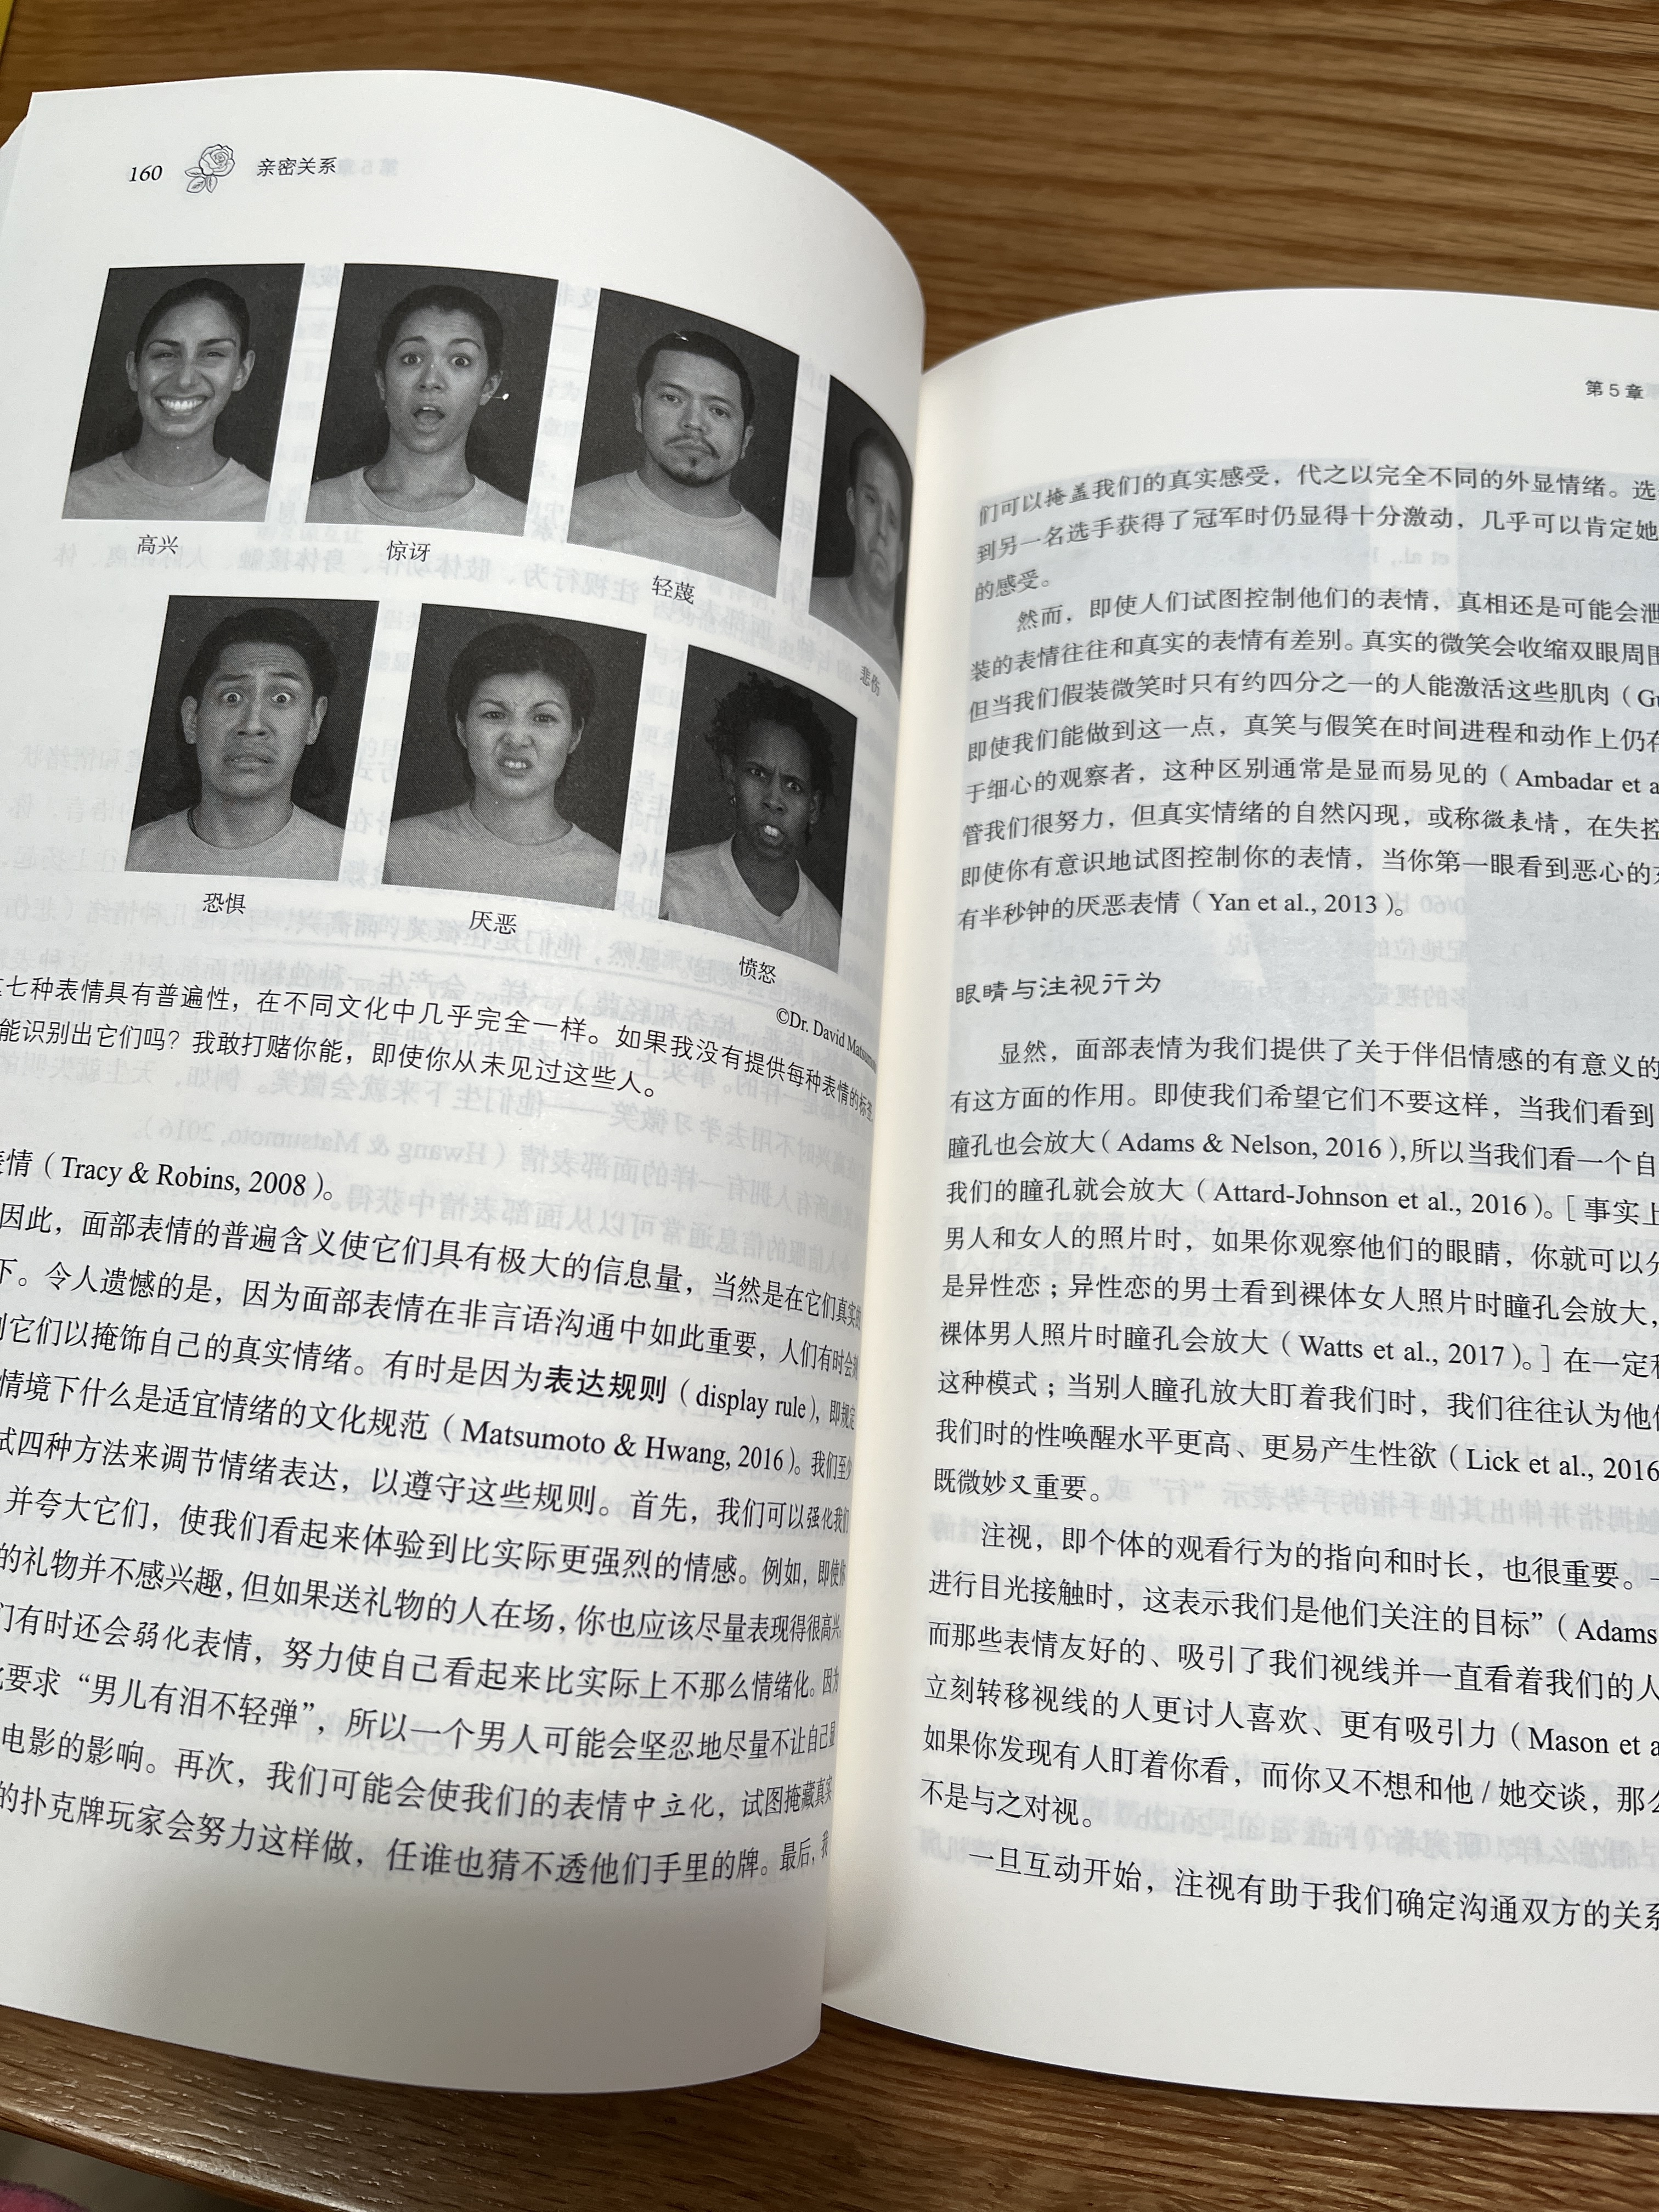 160 亲密关系
高兴
惊讶
轻蔑
悲伤
恐惧
厌恶
愤怒
©Dr. David
七种表情具有普遍性，在不同文化中几乎完全一样。如果我没有提供每种表情的标签
能识别出它们吗？我敢打赌你能，即使你从未见过这些人。
表情（Tracy & Robins, 2008）。
因此，面部表情的普遍含义使它们具有极大的信息量，当然是在它们真实的
下。令人遗憾的是，因为面部表情在非言语沟通中如此重要，人们有时会
它们以掩饰自己的真实情绪。有时是因为表达规则（display rule），即规定
情境下什么是适宜情绪的文化规范（Matsumoto & Hwang, 2016）。我们至少
试四种方法来调节情绪表达，以遵守这些规则。首先，我们可以强化我们
并夸大它们，使我们看起来体验到比实际更强烈的情感。例如，即使你
的礼物并不感兴趣，但如果送礼物的人在场，你也应该尽量表现得很高兴。
们有时还会弱化表情，努力使自己看起来比实际上不那么情绪化。因为
要求“男儿有泪不轻弹”，所以一个男人可能会坚忍地尽量不让自己显
电影的影响。再次，我们可能会使我们的表情中立化，试图掩藏真实
的扑克牌玩家会努力这样做，任谁也猜不透他们手里的牌。最后，我
第 5 章
们可以掩盖我们的真实感受，代之以完全不同的外显情绪。选
到另一名选手获得了冠军时仍显得十分激动，几乎可以肯定她
的感受。
然而，即使人们试图控制他们的表情，真相还是可能会泄
装的表情往往和真实的表情有差别。真实的微笑会收缩双眼周围
但当我们假装微笑时只有约四分之一的人能激活这些肌肉（Gu
即使我们能做到这一点，真笑与假笑在时间进程和动作上仍有
于细心的观察者，这种区别通常是显而易见的（Ambadar et a
管我们很努力，但真实情绪的自然闪现，或称微表情，在失控
即使你有意识地试图控制你的表情，当你第一眼看到恶心的东
有半秒钟的厌恶表情（Yan et al., 2013）。
眼睛与注视行为
显然，面部表情为我们提供了关于伴侣情感的有意义的
有这方面的作用。即使我们希望它们不要这样，当我们看到
瞳孔也会放大（Adams & Nelson, 2016），所以当我们看一个自
我们的瞳孔就会放大（Attard-Johnson et al., 2016）。［事实上
男人和女人的照片时，如果你观察他们的眼睛，你就可以分
是异性恋；异性恋的男士看到裸体女人照片时瞳孔会放大，
裸体男人照片时瞳孔会放大（Watts et al., 2017）。］在一定程
这种模式；当别人瞳孔放大盯着我们时，我们往往认为他
我们时的性唤醒水平更高、更易产生性欲（Lick et al., 2016
既微妙又重要。
注视，即个体的观看行为的指向和时长，也很重要。
进行目光接触时，这表示我们是他们关注的目标”（Adams
而那些表情友好的、吸引了我们视线并一直看着我们的人
立刻转移视线的人更讨人喜欢、更有吸引力（Mason et a
如果你发现有人盯着你看，而你又不想和他 / 她交谈，那么
不是与之对视。
一旦互动开始，注视有助于我们确定沟通双方的关系